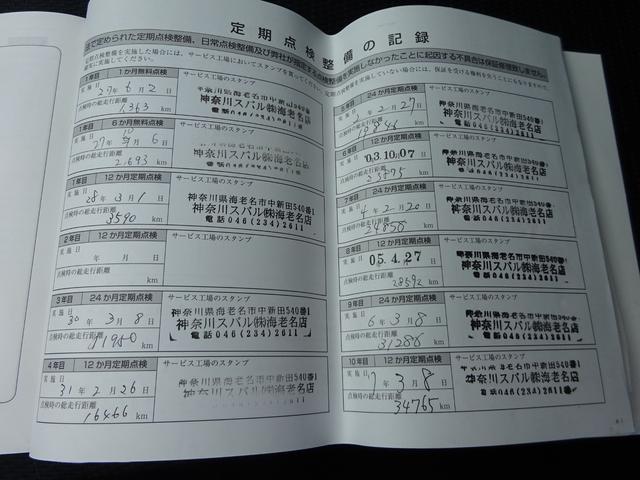 定期点検整備の記録
法で定められた定期点検整備、日常点検整備及び弊社が指定する点検整備を実施しなかったことに起因する不具合は保証修理致しません。
1年目 1か月無料点検
サービス工場のスタンプ
実施日 27年 6月 2日
点検時の総走行距離
1363 km
神奈川県海老名市中新田540番1
神奈川スバル㈱海老名店
電話046(234)2611
1年目 6か月無料点検
サービス工場のスタンプ
実施日 27年 10月 6日
点検時の総走行距離
2693 km
神奈川スバル㈱海老名店
1年目 12か月定期点検
サービス工場のスタンプ
実施日 28年 3月 1日
点検時の総走行距離
3590 km
神奈川県海老名市中新田540番1
神奈川スバル㈱海老名店
電話046(234)2611
2年目 12か月定期点検
サービス工場のスタンプ
実施日 年 月 日
点検時の総走行距離
km
3年目 24か月定期点検
サービス工場のスタンプ
実施日 30年 3月 8日
点検時の総走行距離
11950 km
神奈川県海老名市中新田540番1
神奈川スバル㈱海老名店
電話046(234)2611
4年目 12か月定期点検
サービス工場のスタンプ
実施日 31年 2月 26日
点検時の総走行距離
16466 km
神奈川県海老名市中新田540番1
神奈川スバル㈱海老名店
5年目 24か月定期点検
サービス工場のスタンプ
実施日 2年 2月 27日
点検時の総走行距離
km
神奈川県海老名市中新田540番1
神奈川スバル㈱海老名店
電話046(234)2611
6年目 12か月定期点検
サービス工場のスタンプ
実施日 03.10.07
点検時の総走行距離
km
神奈川県海老名市中新田540番1
神奈川スバル㈱海老名店
電話046(234)2611
7年目 24か月定期点検
サービス工場のスタンプ
実施日 4年 2月 20日
点検時の総走行距離
24850 km
神奈川県海老名市中新田540番1
神奈川スバル㈱海老名店
電話046(234)2611
8年目 12か月定期点検
サービス工場のスタンプ
実施日 05.4.27
点検時の総走行距離
28592 km
神奈川県海老名市中新田540番1
神奈川スバル㈱海老名店
電話046(234)2611
9年目 24か月定期点検
サービス工場のスタンプ
実施日 6年 3月 8日
点検時の総走行距離
31286 km
神奈川県海老名市中新田540番1
神奈川スバル㈱海老名店
電話046(234)2611
10年目 12か月定期点検
サービス工場のスタンプ
実施日 7年 3月 8日
点検時の総走行距離
34765 km
神奈川県海老名市中新田540番1
神奈川スバル㈱海老名店
電話046(234)2611